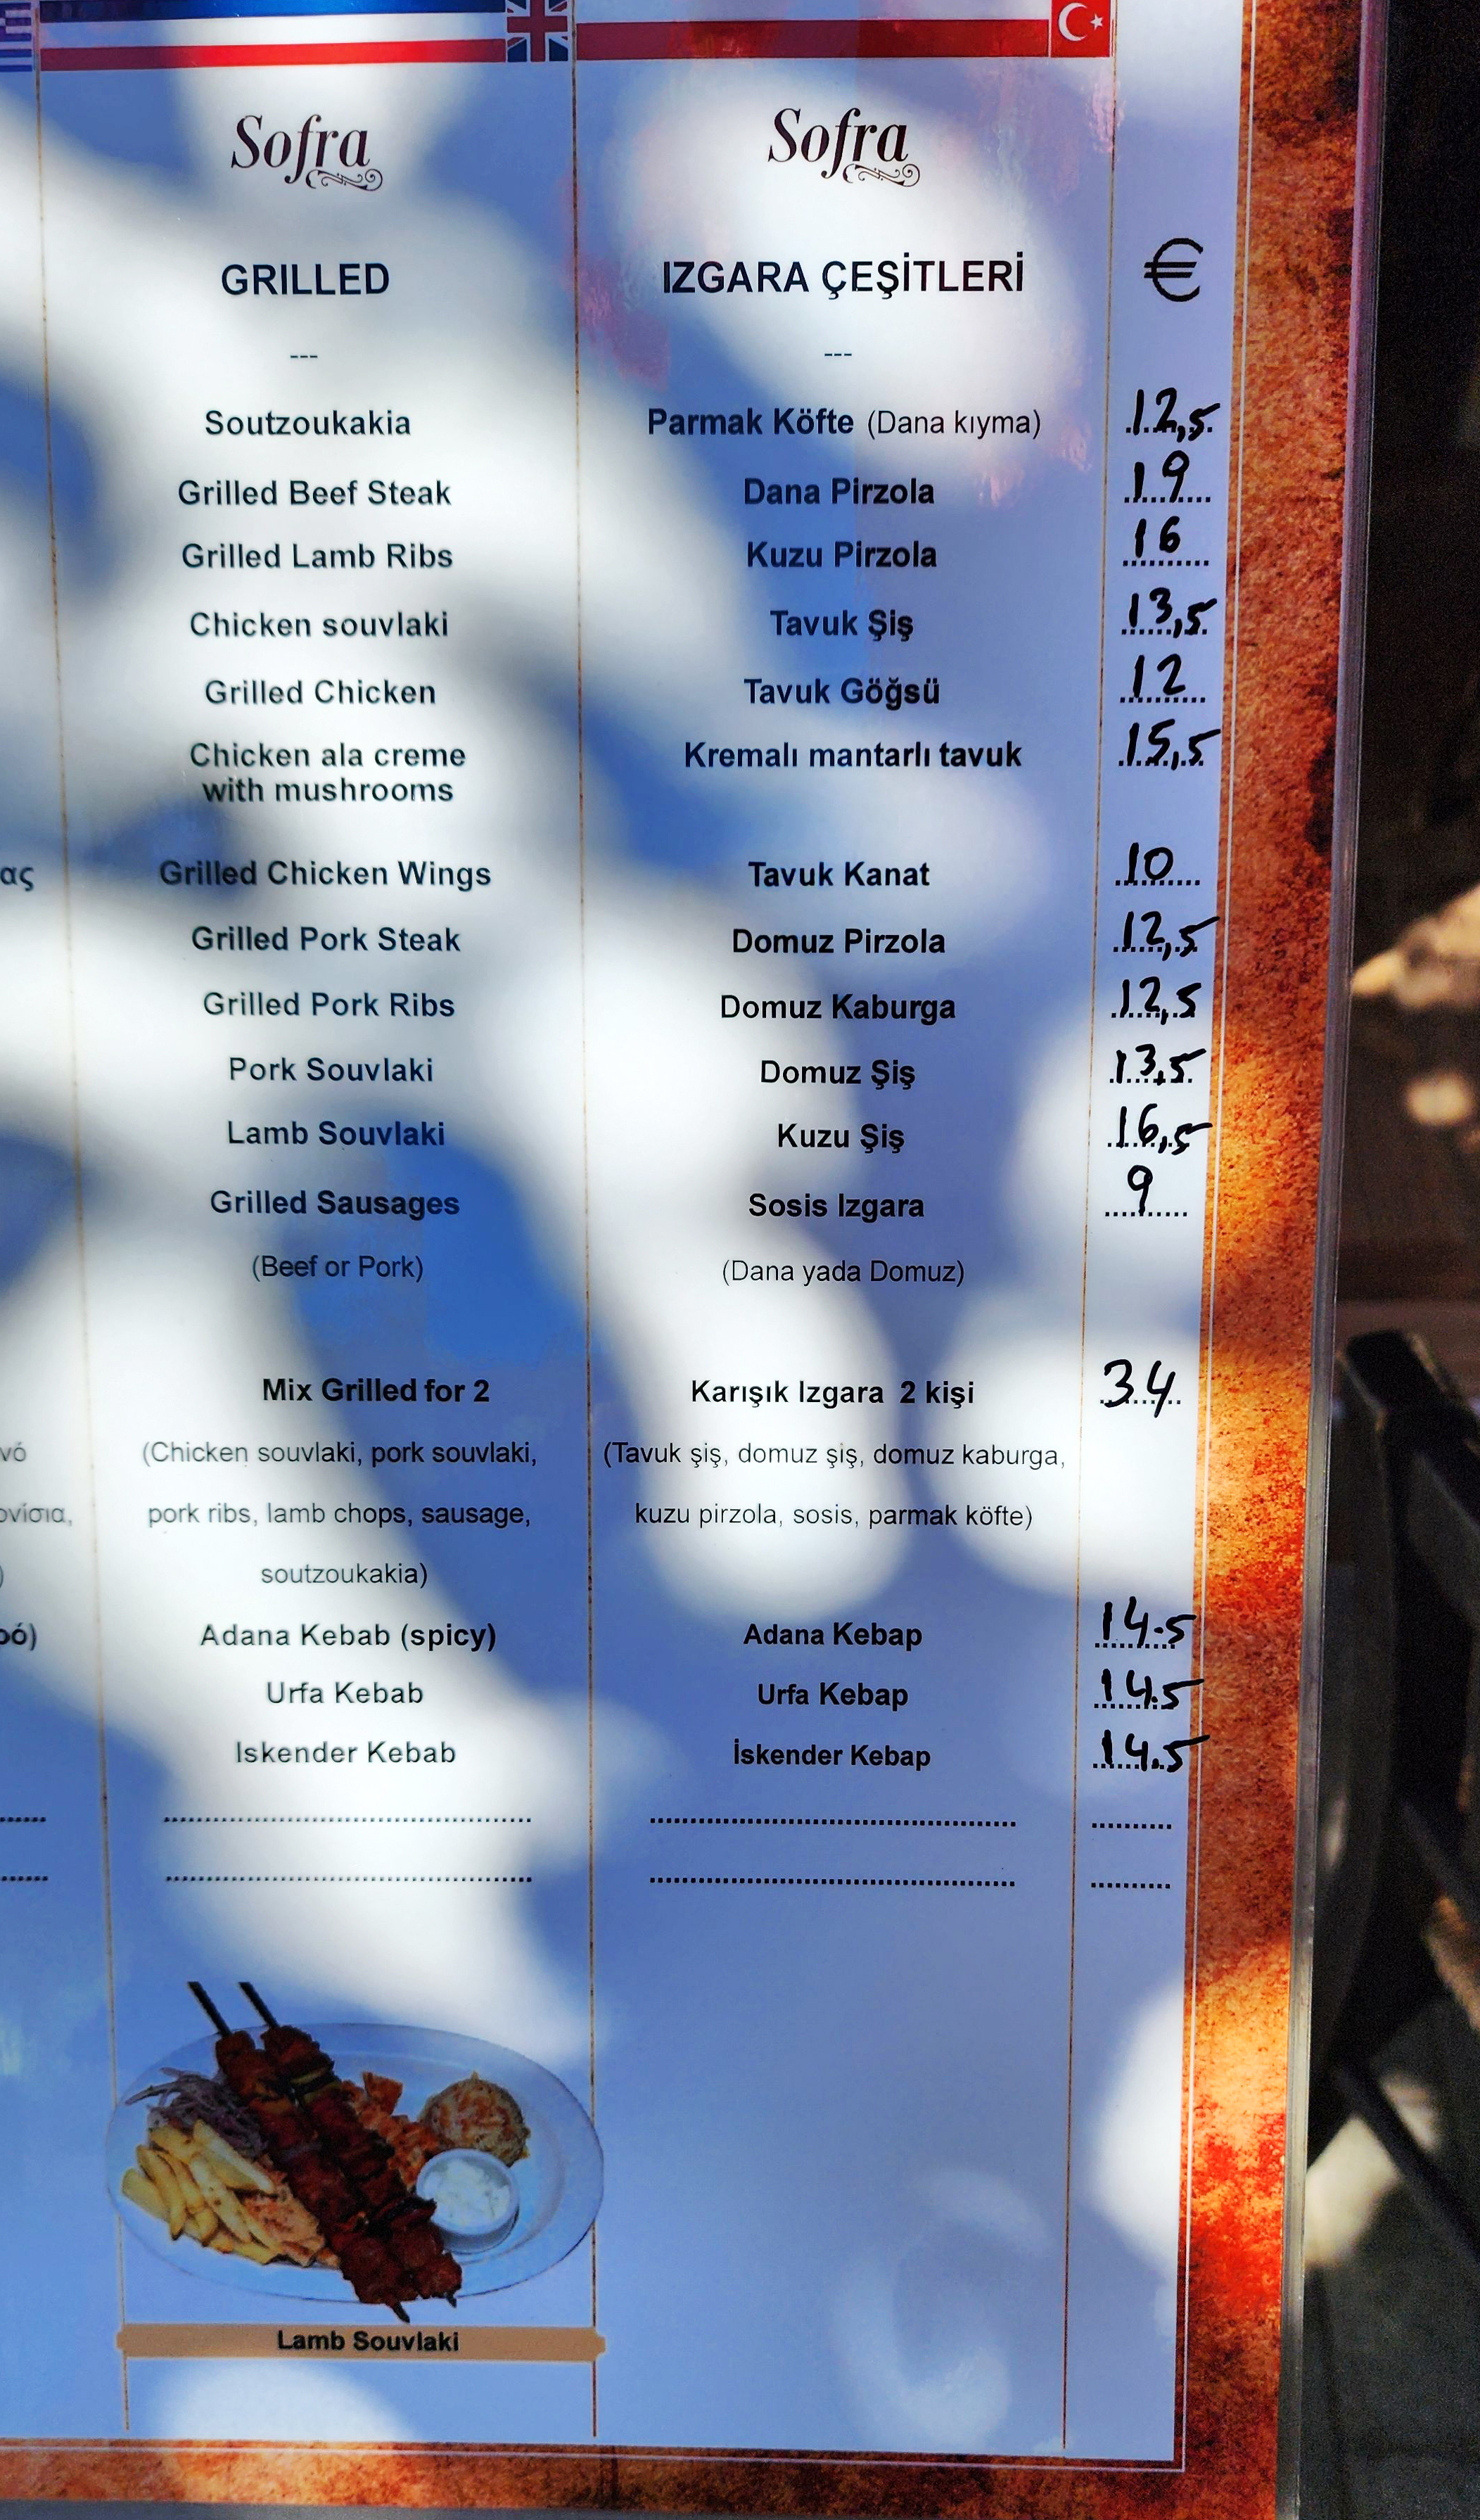 Sofra Sofra
GRILLED IZGARA ÇEŞİTLERİ €
--- ---
Soutzoukakia Parmak Köfte (Dana kıyma) 12,5
Grilled Beef Steak Dana Pirzola 19
Grilled Lamb Ribs Kuzu Pirzola 16
Chicken souvlaki Tavuk Şiş 13,5
Grilled Chicken Tavuk Göğsü 12
Chicken ala creme Kremalı mantarlı tavuk 15,5
with mushrooms
ας Grilled Chicken Wings Tavuk Kanat 10
Grilled Pork Steak Domuz Pirzola 12,5
Grilled Pork Ribs Domuz Kaburga 12,5
Pork Souvlaki Domuz Şiş 13,5
Lamb Souvlaki Kuzu Şiş 16,5
Grilled Sausages Sosis Izgara 9
(Beef or Pork) (Dana yada Domuz)
Mix Grilled for 2 Karışık Izgara 2 kişi 34
νό (Chicken souvlaki, pork souvlaki, (Tavuk şiş, domuz şiş, domuz kaburga,
ονίσια, pork ribs, lamb chops, sausage, kuzu pirzola, sosis, parmak köfte)
) soutzoukakia)
ρό) Adana Kebab (spicy) Adana Kebap 14.5
Urfa Kebab Urfa Kebap 14.5
Iskender Kebab İskender Kebap 14.5
Lamb Souvlaki